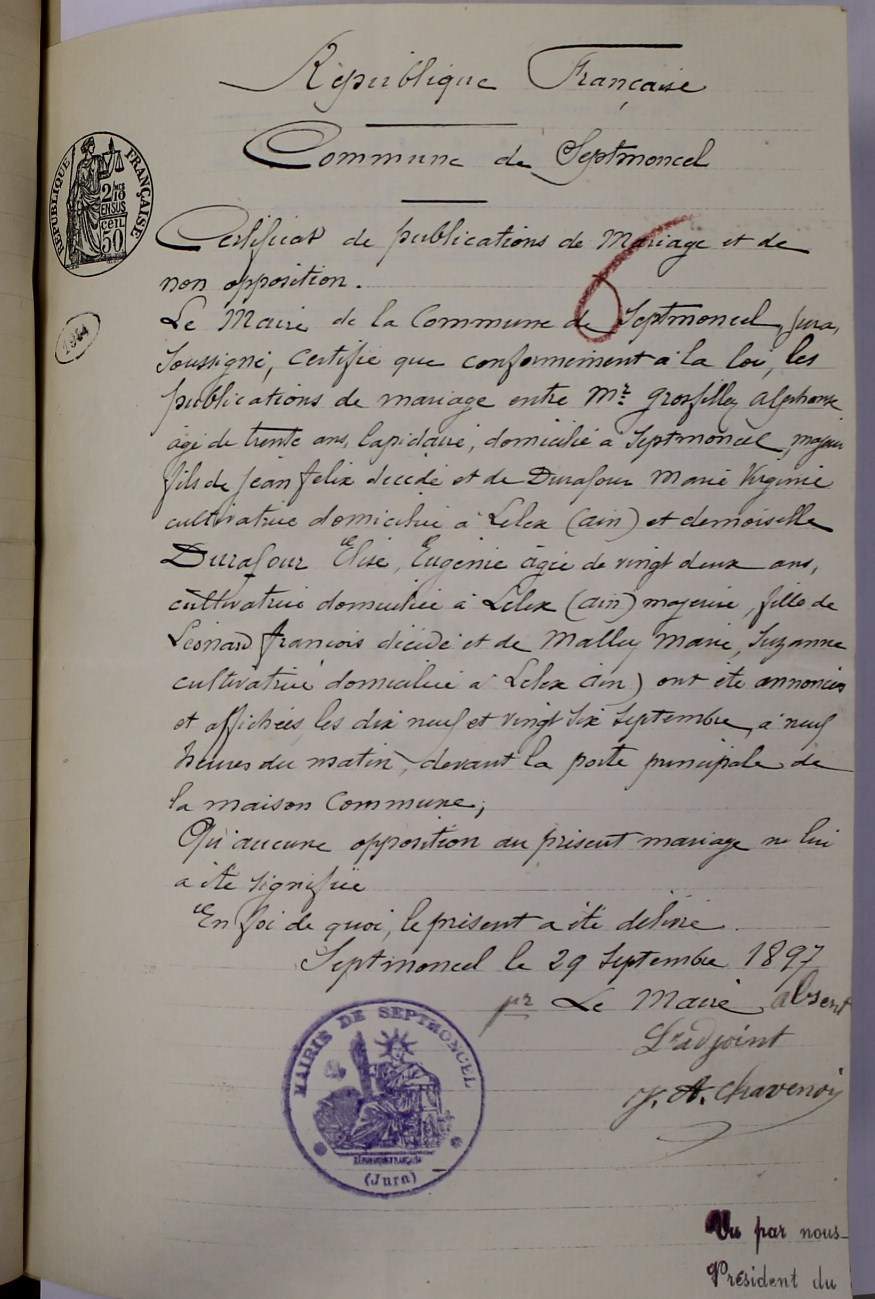 République Française
Commune de Septmoncel
RÉPUBLIQUE FRANÇAISE
2/10
EN SUS
50
Certificat de publications de Mariage et de
non opposition.
6
Le Maire de la Commune de Septmoncel, Jura,
Soussigné, certifie que conformément à la loi, les
publications de mariage entre Mr Grosfilley Alphonse
âgé de trente ans, lapidaire, domicilié à Septmoncel, majeur
fils de Jean félix décédé et de Durafour Marie Virginie
cultivatrice domiciliée à Lélex (ain) et demoiselle
Durafour Elise, Eugénie âgée de vingt deux ans,
cultivatrice domiciliée à Lélex (ain) majeure, fille de
Léonard françois décédé et de Malley Marie, Suzanne
cultivatrice domiciliée à Lélex ain) ont été annoncées
et affichées les dix neuf et vingt six Septembre, à neuf
heures du matin, devant la porte principale de
la maison Commune,
Qu'aucune opposition au présent mariage ne lui
a été signifiée
En foi de quoi, le présent a été délivré
Septmoncel le 29 Septembre 1897
pr Le Maire absent
L'adjoint
MAIRIE DE SEPTMONCEL
RÉPUBLIQUE FRANÇAISE
(Jura)
Vu par nous
Président du